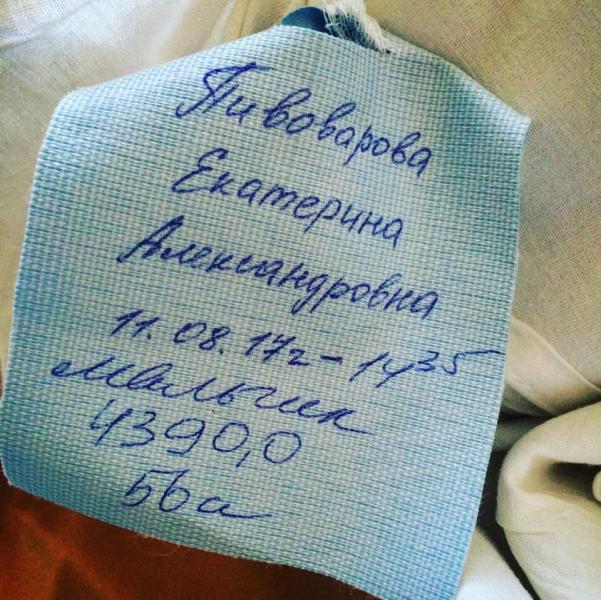 Пивоварова
Екатерина
Александровна
11.08.17г - 14 35
мальчик
4390,0
56см